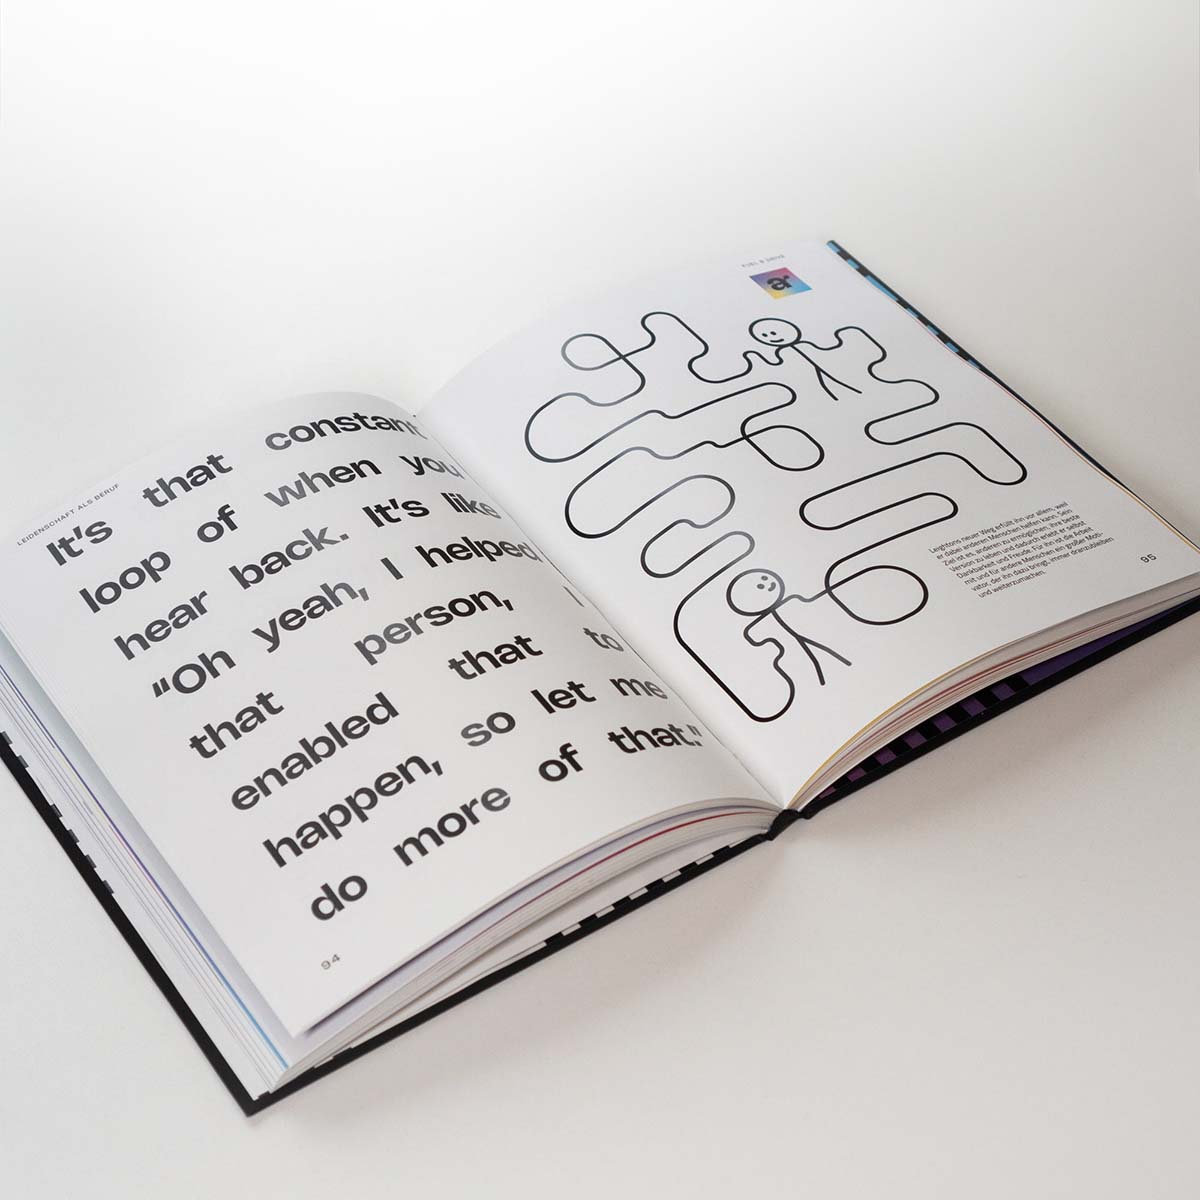 LEIDENSCHAFT ALS BERUF
It's that constant
loop of when you
hear back. It's like
“Oh yeah, I helped
that person, I
enabled that to
happen, so let me
do more of that.”
94
FUEL & DRIVE
ar
Leightons neuer Weg erfüllt ihn vor allem, weil
er dabei anderen Menschen helfen kann. Sein
Ziel ist es, anderen zu ermöglichen, ihre beste
Version zu leben und dadurch erlebt er selbst
Dankbarkeit und Freude. Für ihn ist die Arbeit
mit und für andere Menschen ein großer Moti-
vator, der ihn dazu bringt, immer dranzubleiben
und weiterzumachen.
95